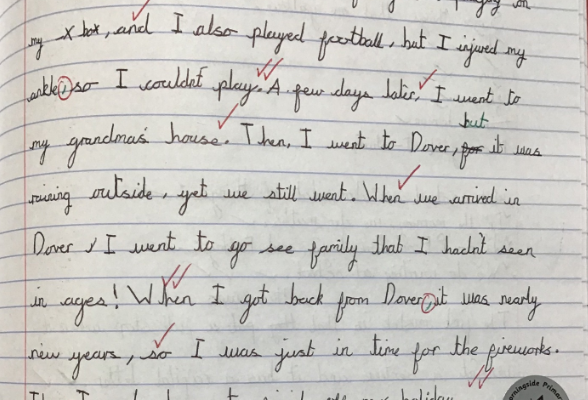 on
my x box, and I also played football, but I injured my
ankle, so I couldn't play. A few days later, I went to
but
my grandma's house. Then, I went to Dover, for it was
raining outside, yet we still went. When we arrived in
Dover, I went to go see family that I hadn't seen
in ages! When I got back from Dover, it was nearly
new years, so I was just in time for the fireworks.
holiday